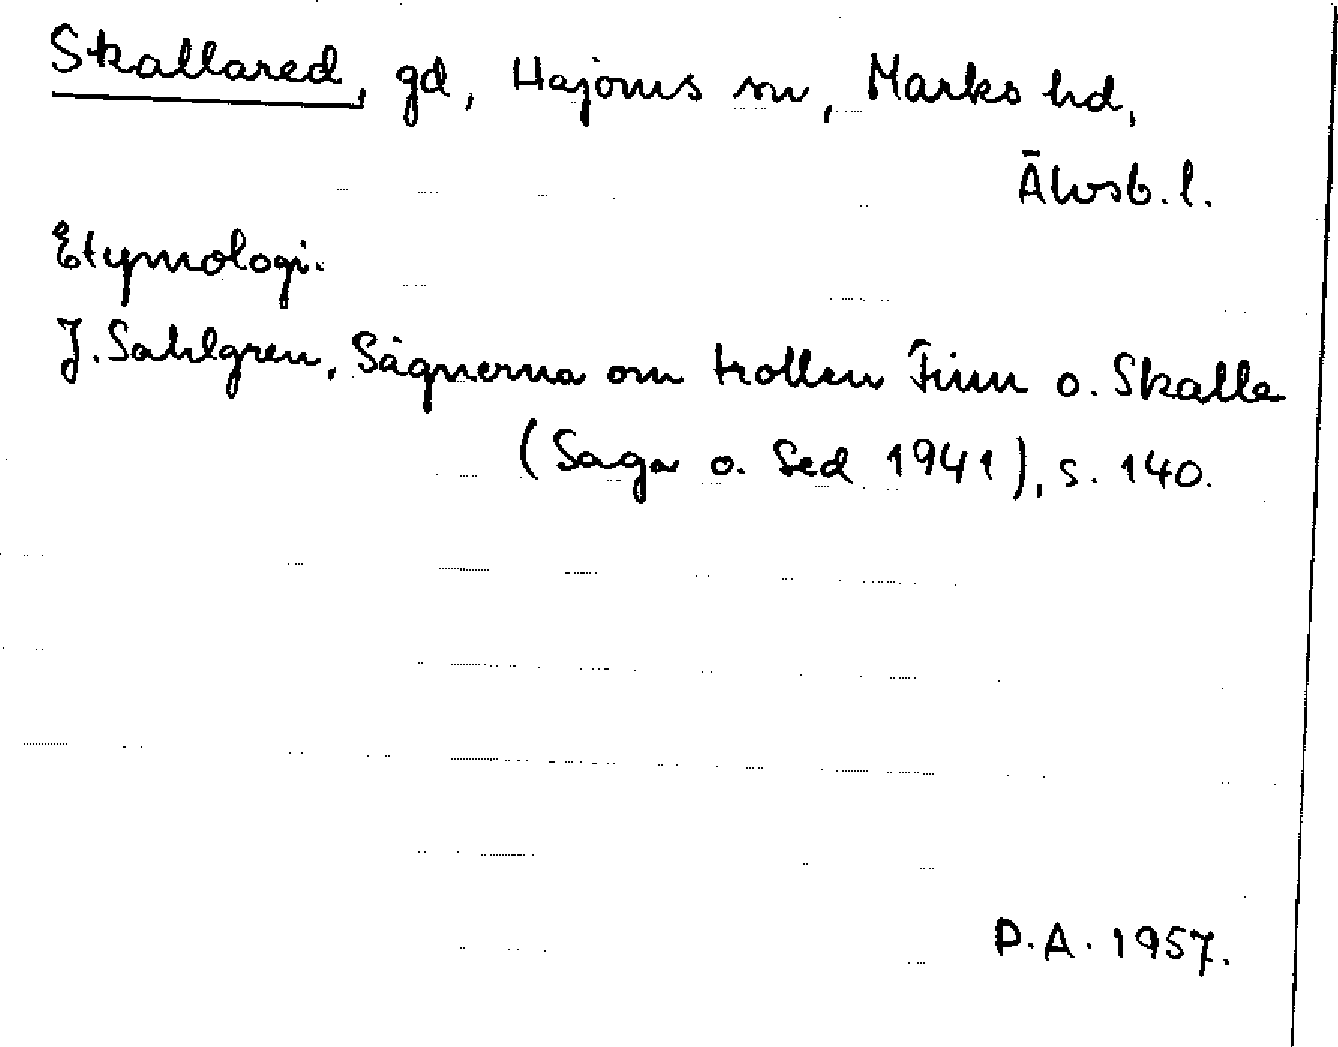 Skallared, gd, Hajoms sn, Marks hd,
Älvsb. l.
Etymologi.
J. Sahlgren, Sägnerna om trollen Finn o. Skalle
(Saga o. Sed 1941), s. 140.
D.A. 1957.